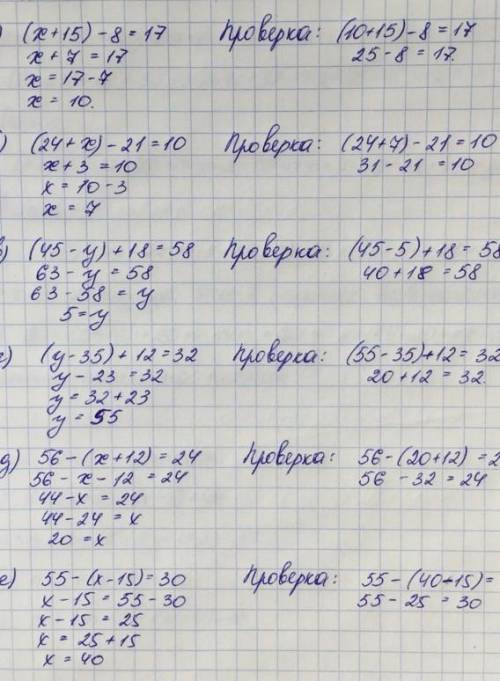 ) (x+15)-8=17 Проверка: (10+15)-8=17
x+7=17 25-8=17.
x=17-7
x=10.
) (24+x)-21=10 Проверка: (24+7)-21=10
x+3=10 31-21=10
x=10-3
x=7
в) (45-y)+18=58 Проверка: (45-5)+18=58
63-y=58 40+18=58
63-58=y
5=y
г) (y-35)+12=32 Проверка: (55-35)+12=32
y-23=32 20+12=32.
y=32+23
y=55
д) 56-(x+12)=24 Проверка: 56-(20+12)=2
56-x-12=24 56-32=24
44-x=24
44-24=x
20=x
е) 55-(x-15)=30 Проверка: 55-(40-15)=
x-15=55-30 55-25=30
x-15=25
x=25+15
x=40